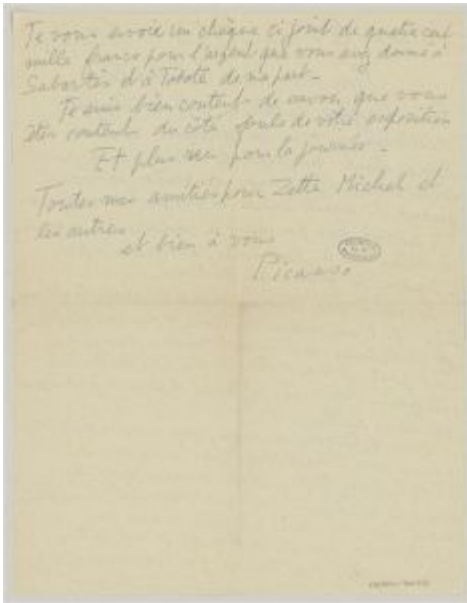 Je vous envoie un chèque ci joint de quatre cent
mille francs pour l'argent que vous avez donné à
Sabartés et à Totote de ma part.
Je suis bien content de savoir que vous
êtes contents du côté foule de votre exposition
Et plus rien pour la journée.
Toutes mes amitiés pour Zette Michel et
les autres
et bien à vous
Picasso